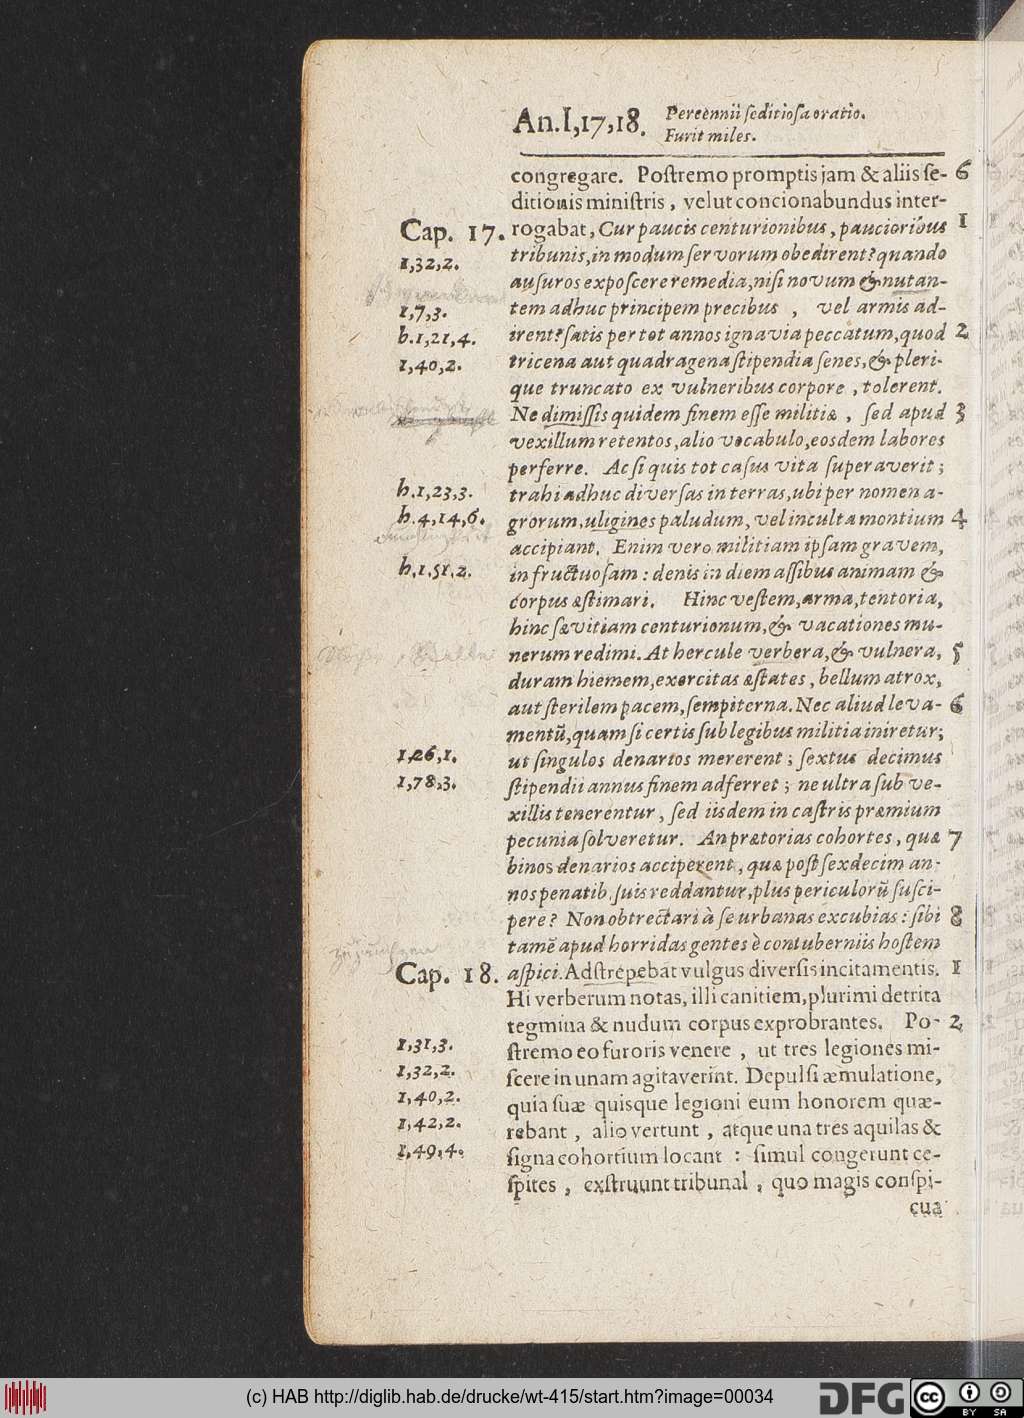 An.I,17,18. Percennii ſeditioſa oratio.
Furit miles.
congregare. Poſtremo promptis jam & aliis ſe- 6
ditionis miniſtris, velut concionabundus inter-
Cap. 17. rogabat, Cur paucis centurionibus, paucioribus 1
1,32,2. tribunis, in modum ſervorum obedirent? quando
auſuros expoſcere remedia, niſi novum & nutan-
1,7,3. tem adhuc principem precibus, vel armis ad-
h.1,21,4. irent? ſatis per tot annos ignavia peccatum, quod 2
1,40,2. tricena aut quadragena ſtipendia ſenes, & pleri-
que truncato ex vulneribus corpore, tolerent.
Ne dimiſſis quidem finem eſſe militiæ, ſed apud 3
vexillum retentos, alio vocabulo, eosdem labores
perferre. Ac ſi quis tot caſus vita ſuperaverit;
h.1,23,3. trahi adhuc diverſas in terras, ubi per nomen a-
h.4,14,6. grorum, uligines paludum, vel inculta montium 4
accipiant. Enim vero militiam ipſam gravem,
h.1.51.2. infructuoſam: denis in diem aſſibus animam &
corpus æſtimari. Hinc veſtem, arma, tentoria,
hinc ſævitiam centurionum, & vacationes mu-
nerum redimi. At hercule verbera, & vulnera, 5
duram hiemem, exercitas æſtates, bellum atrox,
aut ſterilem pacem, ſempiterna. Nec aliud leva- 6
mentũ, quam ſi certis ſub legibus militia iniretur;
1,26,1. ut ſingulos denarios mererent; ſextus decimus
1,78,3. ſtipendii annus finem adferret; ne ultra ſub ve-
xillis tenerentur, ſed iisdem in caſtris præmium
pecunia ſolveretur. An prætorias cohortes, quæ 7
binos denarios acciperent, quæ poſt ſexdecim an-
nos penatib. ſuis reddantur, plus periculorũ ſuſci-
pere? Non obtrectari à ſe urbanas excubias: ſibi 8
tamẽ apud horridas gentes è contuberniis hoſtem
Cap. 18. aſpici. Adſtrepebat vulgus diverſis incitamentis. 1
Hi verberum notas, illi canitiem, plurimi detrita
tegmina & nudum corpus exprobrantes. Po- 2
1,31,3. ſtremo eo furoris venere, ut tres legiones mi-
1,32,2. ſcere in unam agitaverint. Depulſi æmulatione,
1,40,2. quia ſuæ quisque legioni eum honorem quæ-
1,42,2. rebant, alio vertunt, atque una tres aquilas &
1,49,4. ſigna cohortium locant: ſimul congerunt ce-
ſpites, exſtruunt tribunal, quo magis conſpi-
cua
(c) HAB http://diglib.hab.de/drucke/wt-415/start.htm?image=00034
DFG
CC BY SA